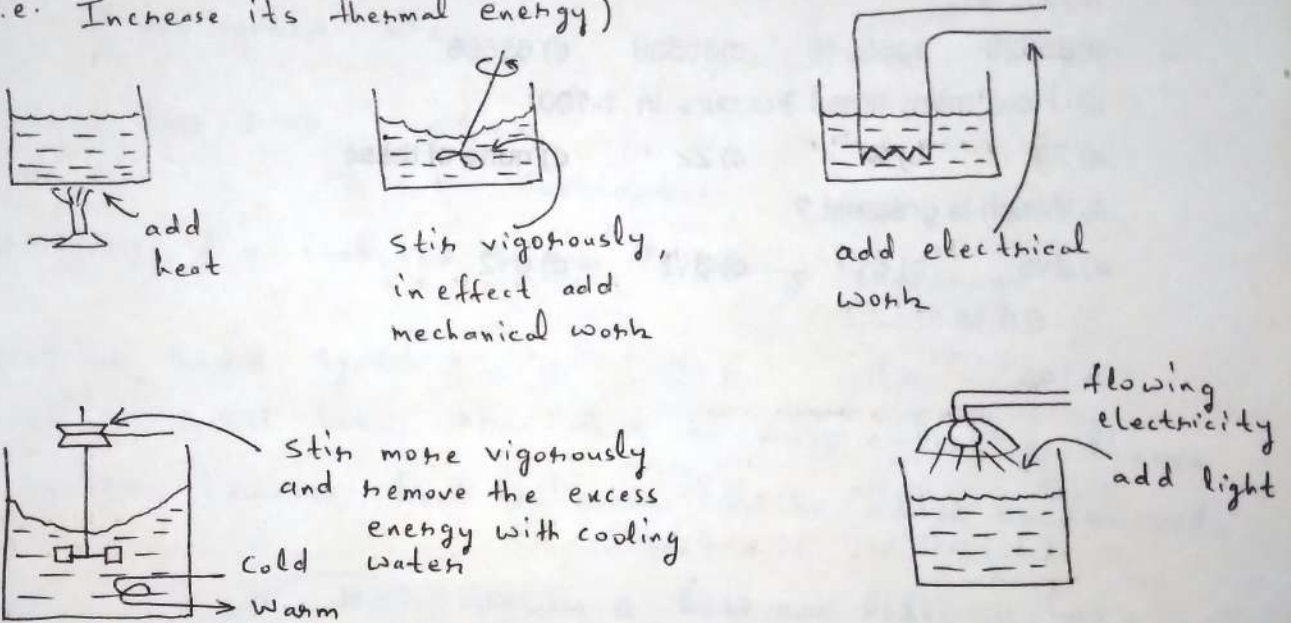 .e. Increase its thermal energy)
add
heat
Stir vigorously,
in effect add
mechanical work
add electrical
work
Stir more vigorously
and remove the excess
energy with cooling
water
Cold
Warm
flowing
electricity
add light